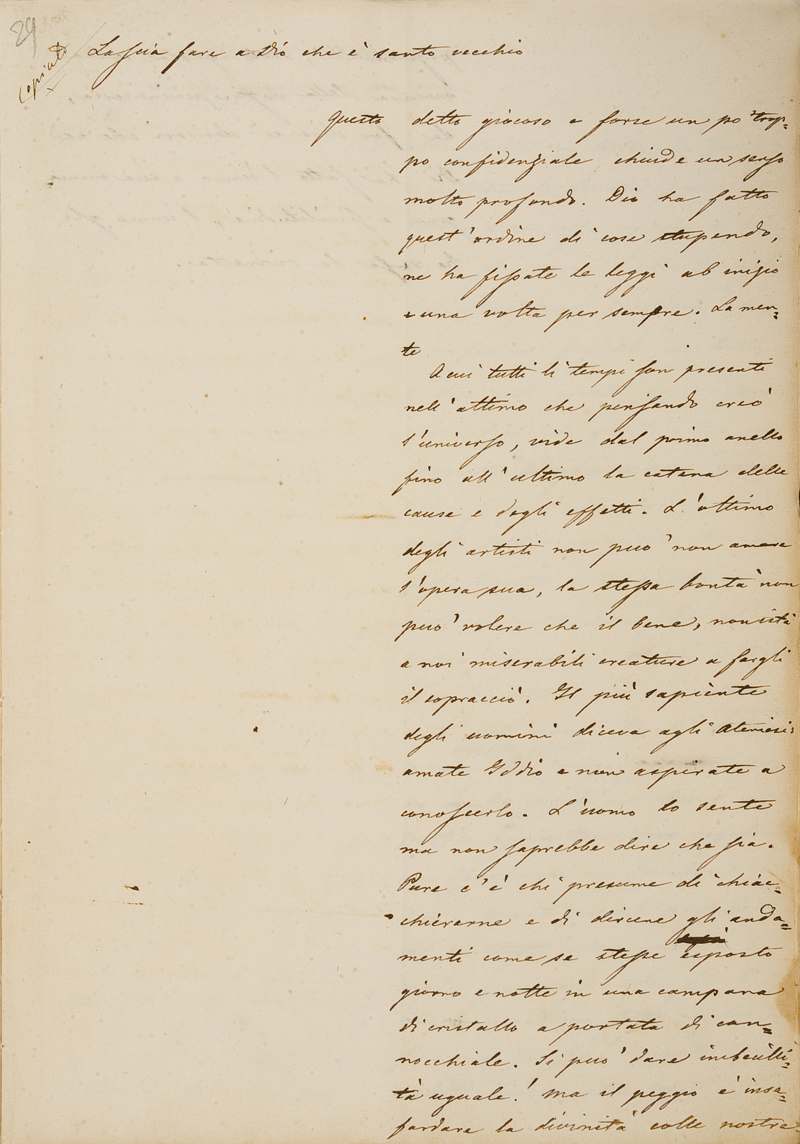 29
Copiato
Lascia fare a Dio che è santo vecchio
Questo detto giocoso e forse un po' trop=
po confidenziale chiude un senso
molto profondo. Dio ha fatto
quest'ordine di cose stupendo,
ne ha fissate le leggi ab inizio
e una volta per sempre. La men=
te
A cui tutti li tempi son presenti
nell'attimo che pensando creò
l'universo, vide dal primo anello
fino all'ultimo la catena delle
cause e degli effetti. L'ottimo
degli artisti non può non amare
l'opera sua, la stessa bontà non
può volere che il bene, non istà
a noi miserabili creature a fargli
il sopracciò. Il più sapiente
degli uomini diceva agli Ateniesi:
amate Iddio e non aspirate a
conoscerlo. L'uomo lo sente
ma non saprebbe dire che sia.
Pure c'è chi presume di chiac=
chierarne e di dircene gli anda=
menti come se stesse esposto
giorno e notte in una campana
di cristallo a portata di can=
nocchiale. Si può dare imbecilli=
tà uguale! ma il peggio è insa=
fardare la divinità colle nostre